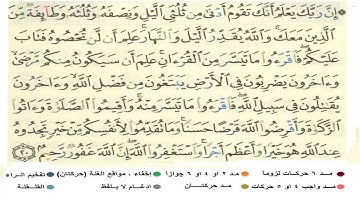 إِنَّ رَبَّكَ يَعْلَمُ أَنَّكَ تَقُومُ أَدْنَىٰ مِن ثُلُثَيِ ٱلَّيْلِ وَنِصْفَهُۥ وَثُلُثَهُۥ وَطَآئِفَةٌ مِّنَ
ٱلَّذِينَ مَعَكَ وَٱللَّهُ يُقَدِّرُ ٱلَّيْلَ وَٱلنَّهَارَ عَلِمَ أَن لَّن تُحْصُوهُ فَتَابَ
عَلَيْكُمْ فَٱقْرَءُوا۟ مَا تَيَسَّرَ مِنَ ٱلْقُرْءَانِ عَلِمَ أَن سَيَكُونُ مِنكُم مَّرْضَىٰ
وَءَاخَرُونَ يَضْرِبُونَ فِى ٱلْأَرْضِ يَبْتَغُونَ مِن فَضْلِ ٱللَّهِ وَءَاخَرُونَ
يُقَٰتِلُونَ فِى سَبِيلِ ٱللَّهِ فَٱقْرَءُوا۟ مَا تَيَسَّرَ مِنْهُ وَأَقِيمُوا۟ ٱلصَّلَوٰةَ وَءَاتُوا۟
ٱلزَّكَوٰةَ وَأَقْرِضُوا۟ ٱللَّهَ قَرْضًا حَسَنًا وَمَا تُقَدِّمُوا۟ لِأَنفُسِكُم مِّنْ خَيْرٍ تَجِدُوهُ
عِندَ ٱللَّهِ هُوَ خَيْرًا وَأَعْظَمَ أَجْرًا وَٱسْتَغْفِرُوا۟ ٱللَّهَ إِنَّ ٱللَّهَ غَفُورٌ رَّحِيمٌ ٢٠
مد ٦ حركات لزوماً مد ٢ او ٤ او ٦ جوازاً إخفاء، ومواقع الغنة (حركتان) تفخيم الراء
مد واجب ٤ او ٥ حركات مد حركتـان ادغام، وما لا يلفظ القلقلة